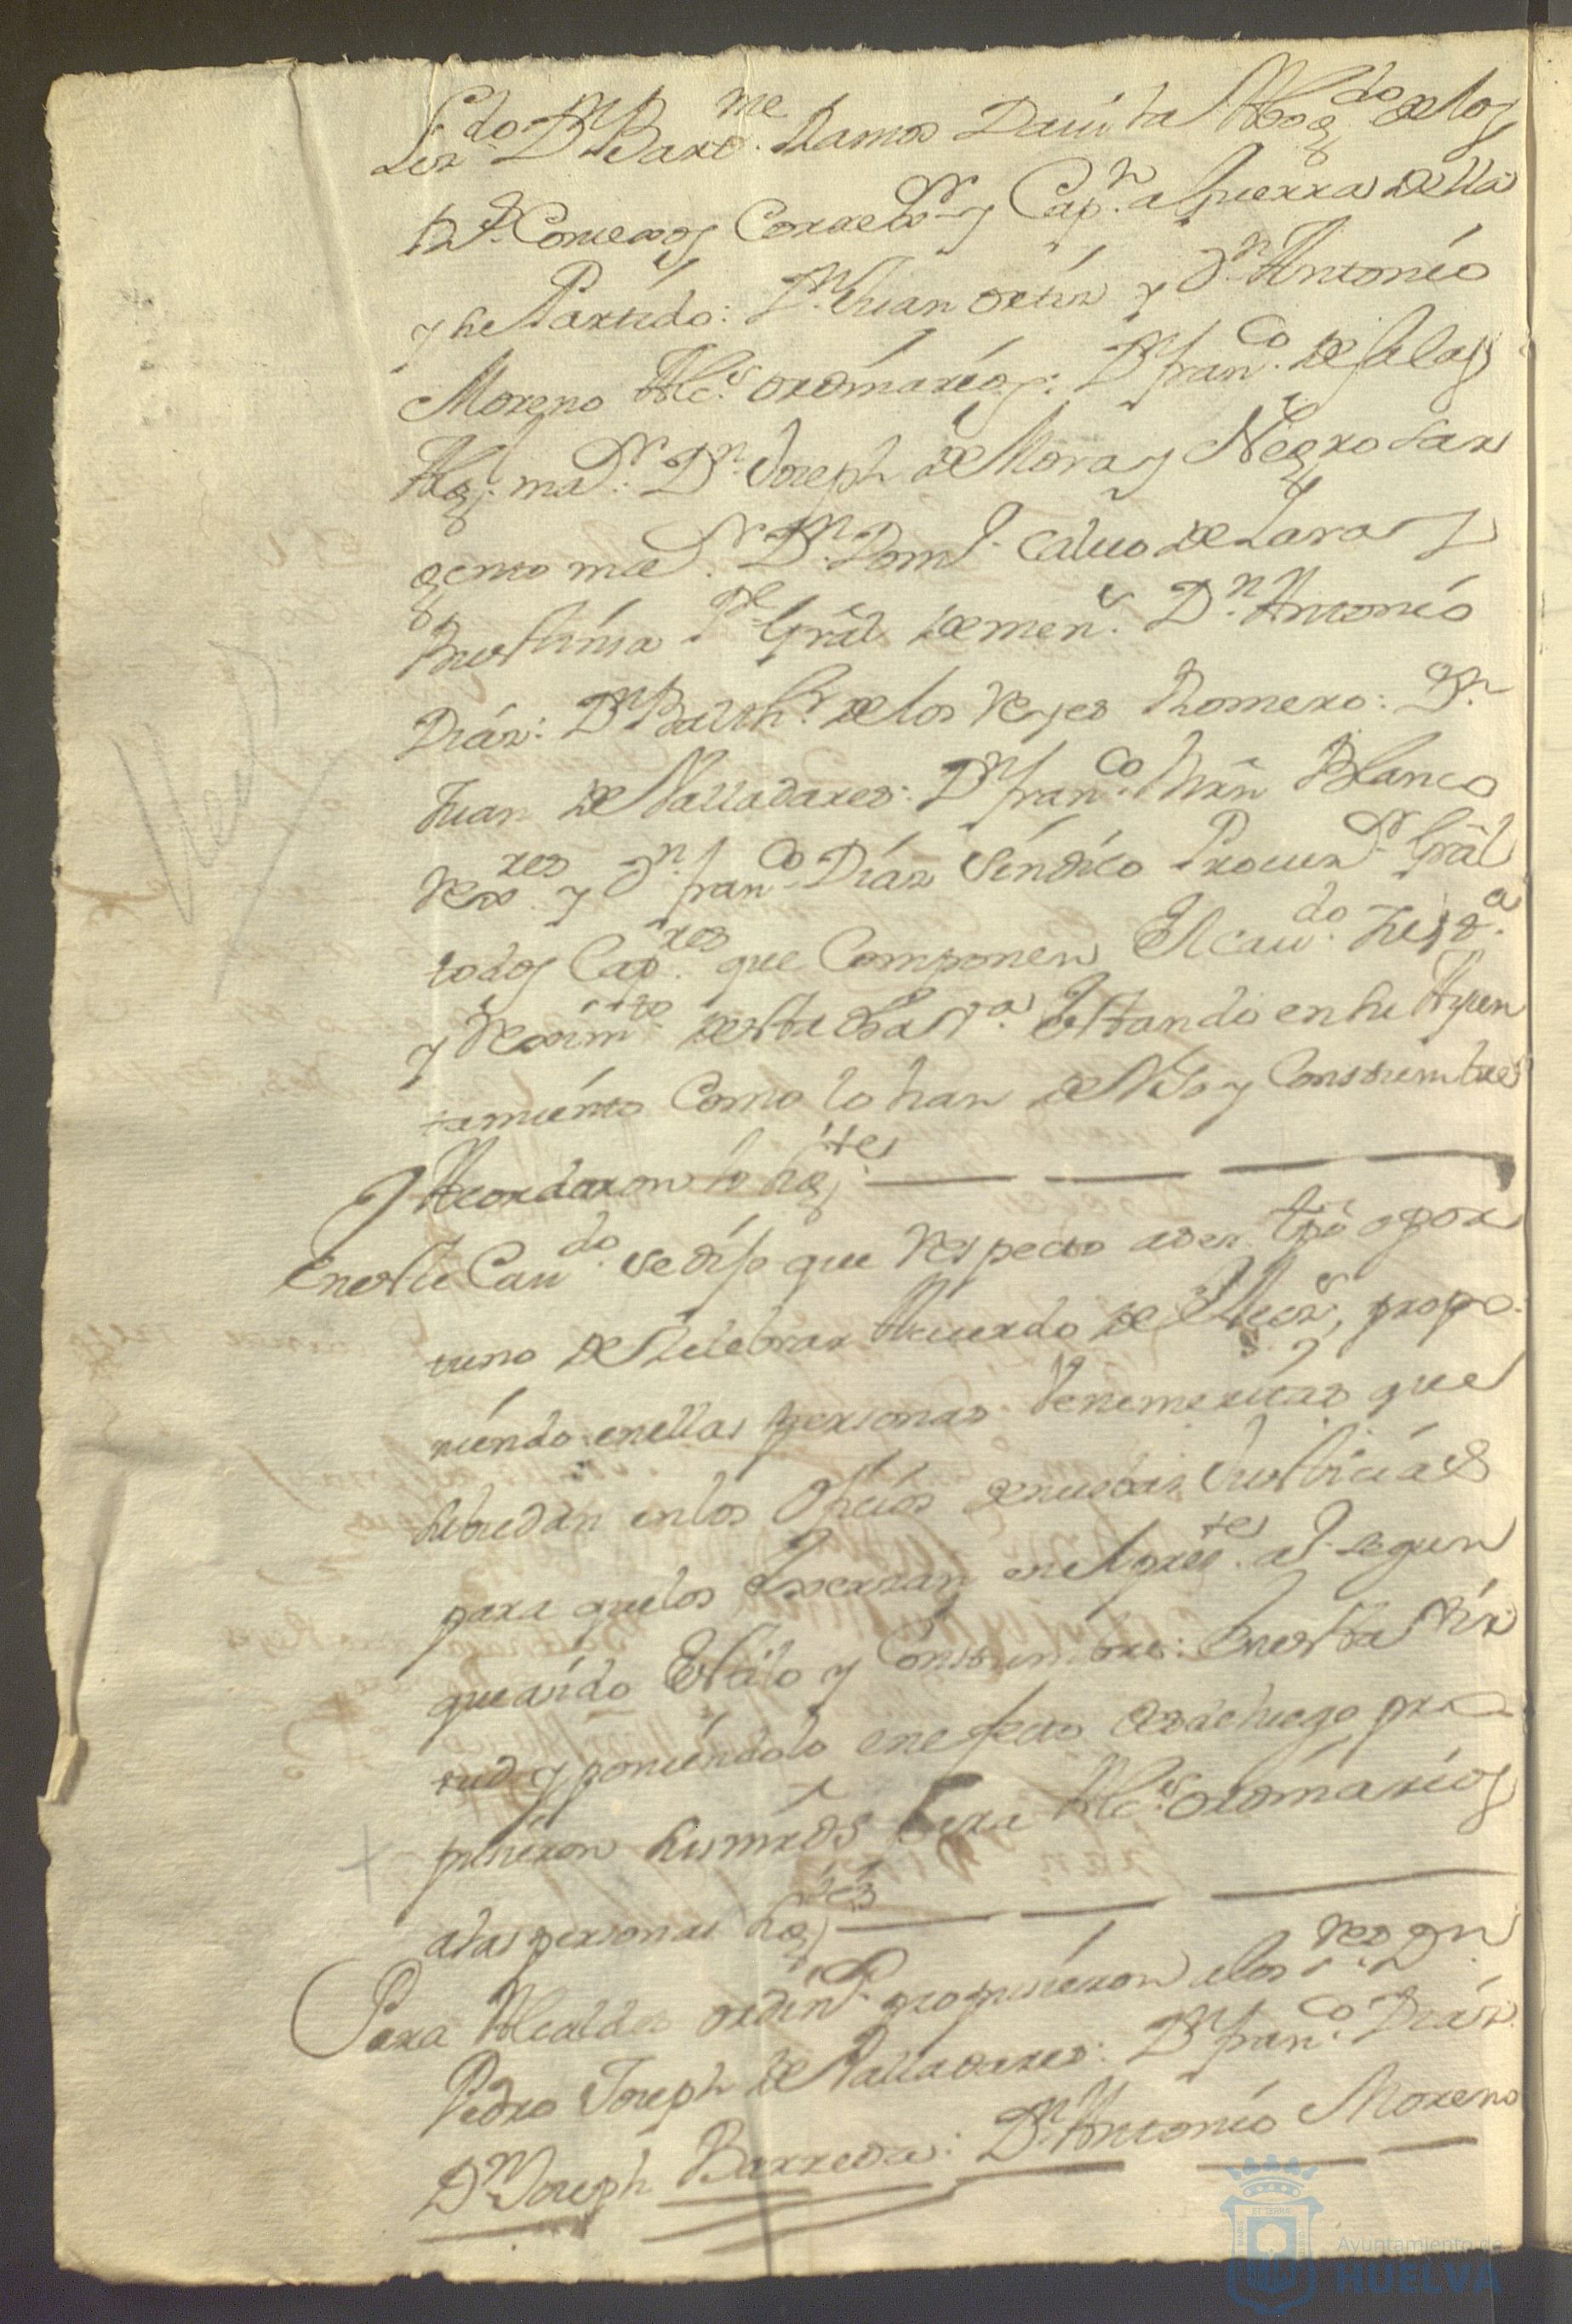 Lizdo. Dn. Bartme. Ramos Dauila Abogdo. de los
Rs. Consexos Correxor. y Capn. a Guerra de lla
y su Partido: Dn. Juan Ortiz y Dn. Antonio
Moreno Alcs. ordinarios: Dn. Franco. de Silas
Alg. mor. Dn. Joseph de Mora y Negro Sar
gento mor. Dn. Domo. Caluo de Lara y
Dn. Antonio
Diáz: Dn. Balthr. de los Reyes Romero: Dn.
Juan de Valladares: Dn. Franco. Mrn Blanco
Rexres. y Dn. Franco. Diáz Sindico Procurr. Gral
todos Capres. que Componen El caudo. Justa.
y Reximto. de esta dha Va. Estando en su Ayun
tamiento Como lo han de Vso y Constumbre
y Acordaron lo sigte.
En este Caudo. se dixo que Respecto a ser tpo opor
tuno de Zelebrar Acuerdo de Elecs., propo
niendo en ellas personas Venemeritas que
subzedan en los ofizios de nuestras Justicias
para que los exerzan en el preste. aº. segun
que a sido Estilo y Constumbre: En esta vir
tud y poniendolo en efecto desde luego pro
pusieron sus mrds Para Alcs. ordinarios
a las personas sigtes
Para Alcaldes ordins. propusieron a los sres. Dn.
Pedro Joseph de Valladares: Dn. Franco. Diáz
Dn. Joseph Barreda: Dn. Antonio Moreno
Ayuntamiento de
HUELVA